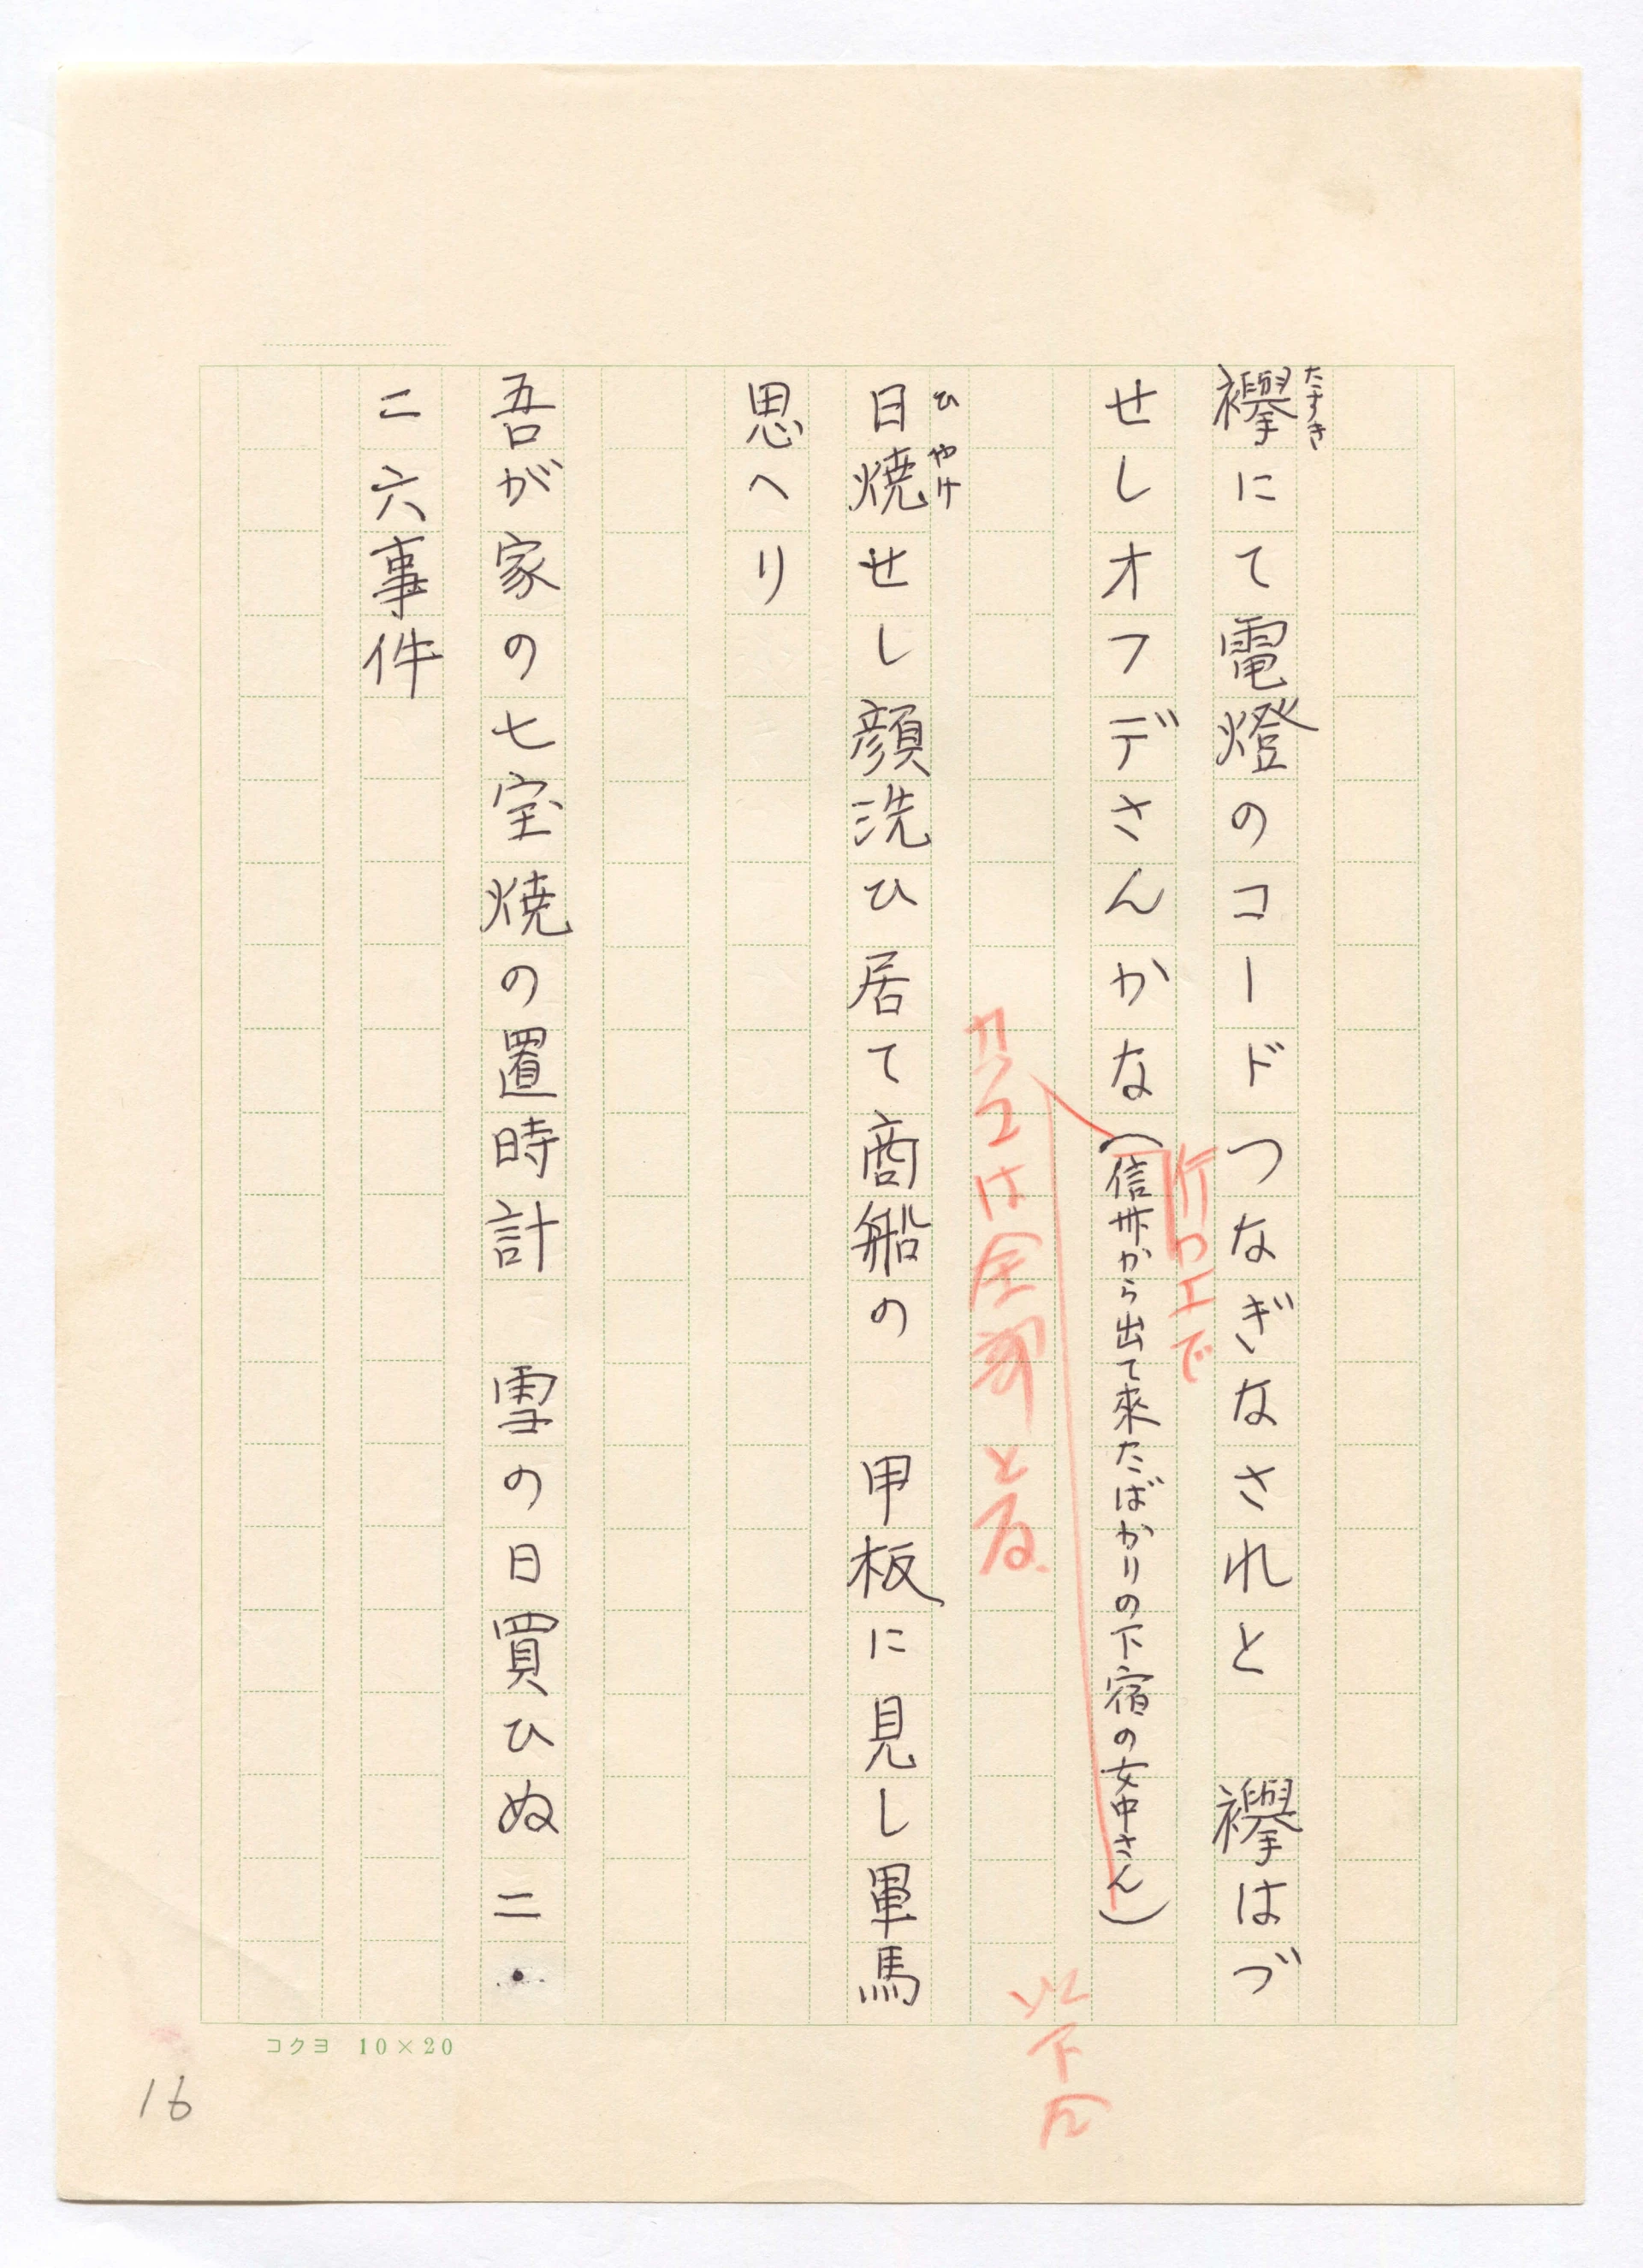 たすき
襷にて電燈のコードつなぎなされと　襷はづ
行カエで
せしオフデさんかな（信州から出て來たばかりの下宿の女中さん）
カッコは全部とる
以下仝
ひやけ
日焼せし顔洗ひ居て商船の　甲板に見し軍馬
思へり
吾が家の七宝焼の置時計　雪の日買ひぬ二・
二六事件
コクヨ 10×20
16